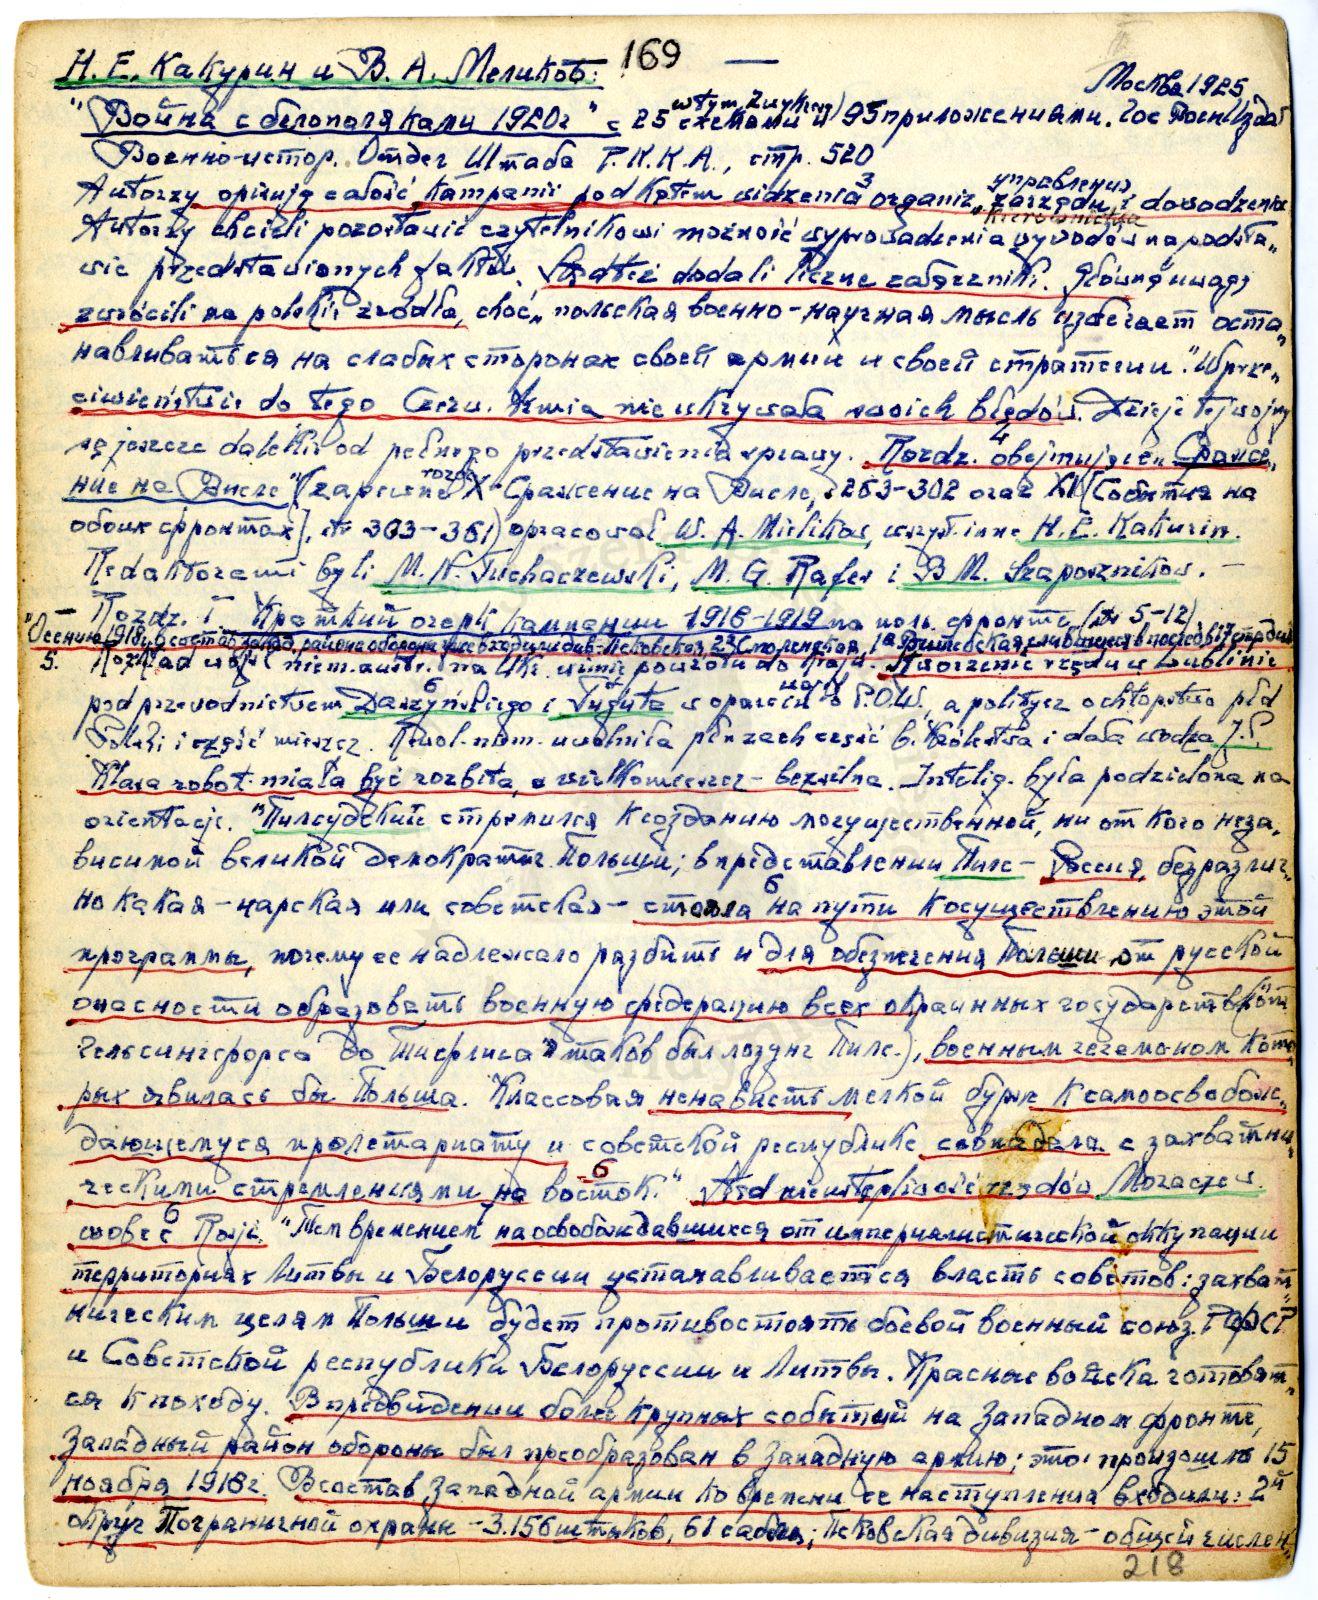 169
Н. Е. Какурин и В. А. Меликов:
Москва 1925
"Война с белополяками 1920г" с 25 схемами и 95 приложениями. Гос Воен Издат
Военно-истор. Отдел Штаба Р.К.К.А., стр. 520
управления
Autorzy opisują całość kampanii pod kątem widzenia 3 organiz. zarządu i dowodzenia
"kierownictwa
Autorzy chcieli pozostawić czytelnikowi możność wyprowadzenia wywodów na podsta„
wie przedstawionych faktów. Stądteż dodali liczne załączniki. Główną uwagę
zwrócili na polskie źródła, choć „польская военно-научная мысль избегает оста„
навливаться на слабых сторонах своей армии и своей стратегии". W prze„
ciwieństwie do tego Czerw. Armia nie ukrywała swoich błędów. Dzieje tej wojny
są jeszcze dalekie od pełnego przedstawienia sprawy. Rozdz. 4 obejmujące „Сраже„
ние на Висле" (zapewne rozdz X-Сражение на Висле, s 263-302 oraz XI [События на
обоих фронтах], str 303-361) opracował W. A. Mielikow, wszyst. inne N. E. Kakurin.
Redaktorami byli M. N. Tuchaczewski, M. G. Rafes i B M. Szaposznikow. —
Rozdz. I. Краткий очерк кампании 1918-1919 на поль. фронте (str 5-12)
"Осенью 1918 г. в состав запад. района обороны уже входили див. Псковская, 2я Смоленская, 1я Витебская, слившиеся в последств 17 стр. див
5. Rozkład wojsk niem. austr. na Ukr. w imię powrotu do kraju. Stworzenie rządu w Lublinie
pod przewodnictwem Daszyńskiego 6 i Tuguta w oparciu o P.O.W., a politycz o chłopstwo płd
Polski i część mieszcz. Rewol. niem. uwolniła płn zach część b. Królestwa i dała wodza J.P.
Klasa robot. miała być rozbita, a wielkomieszcz - bezsilna. Intelig. była podzielona na
orientacje. "Пилсудский стремился к созданию могущественной, ни от кого неза„
висимой великой демократич. Польши; в представлении Пилс - Россия, безразлич„
но какая - царская или советская - стояла 6 на пути к осуществлению этой
программы, почему ее надлежало разбить и для обезпечения Польши от русской
опасности образовать военную федерацию всех окраинных государств ("от
Гельсингфорса до Тифлиса" таков был лозунг Пилс.), военным гегемоном кото„
рых явилась бы Польша. Классовая ненависть мелкой бурж к самоосвобож„
дающемуся пролетариату и советской республике совпадала с захватни„
ческими стремлениями на восток." 6 Stąd nieustępliwość rządów Moraczew.
wobec 6 Rosji. "Тем временем на освобождавшихся от империалистической оккупации
территориях Литвы и Белоруссии устанавливается власть советов: захват„
ническим целям Польши будет противостоять боевой военный союз РСФСР
и Советской республики Белоруссии и Литвы. Красные войска готовят„
ся к походу. В предвидении более крупных событий на Западном фронте,
Западный район обороны был преобразован в Западную армию; это произошло 15
ноября 1918 г. В состав Западной армии ко времени ее наступления входили: 2й
округ Пограничной охраны - 3.156 штыков, 61 сабля; Псковская дивизия - общей числен„
218